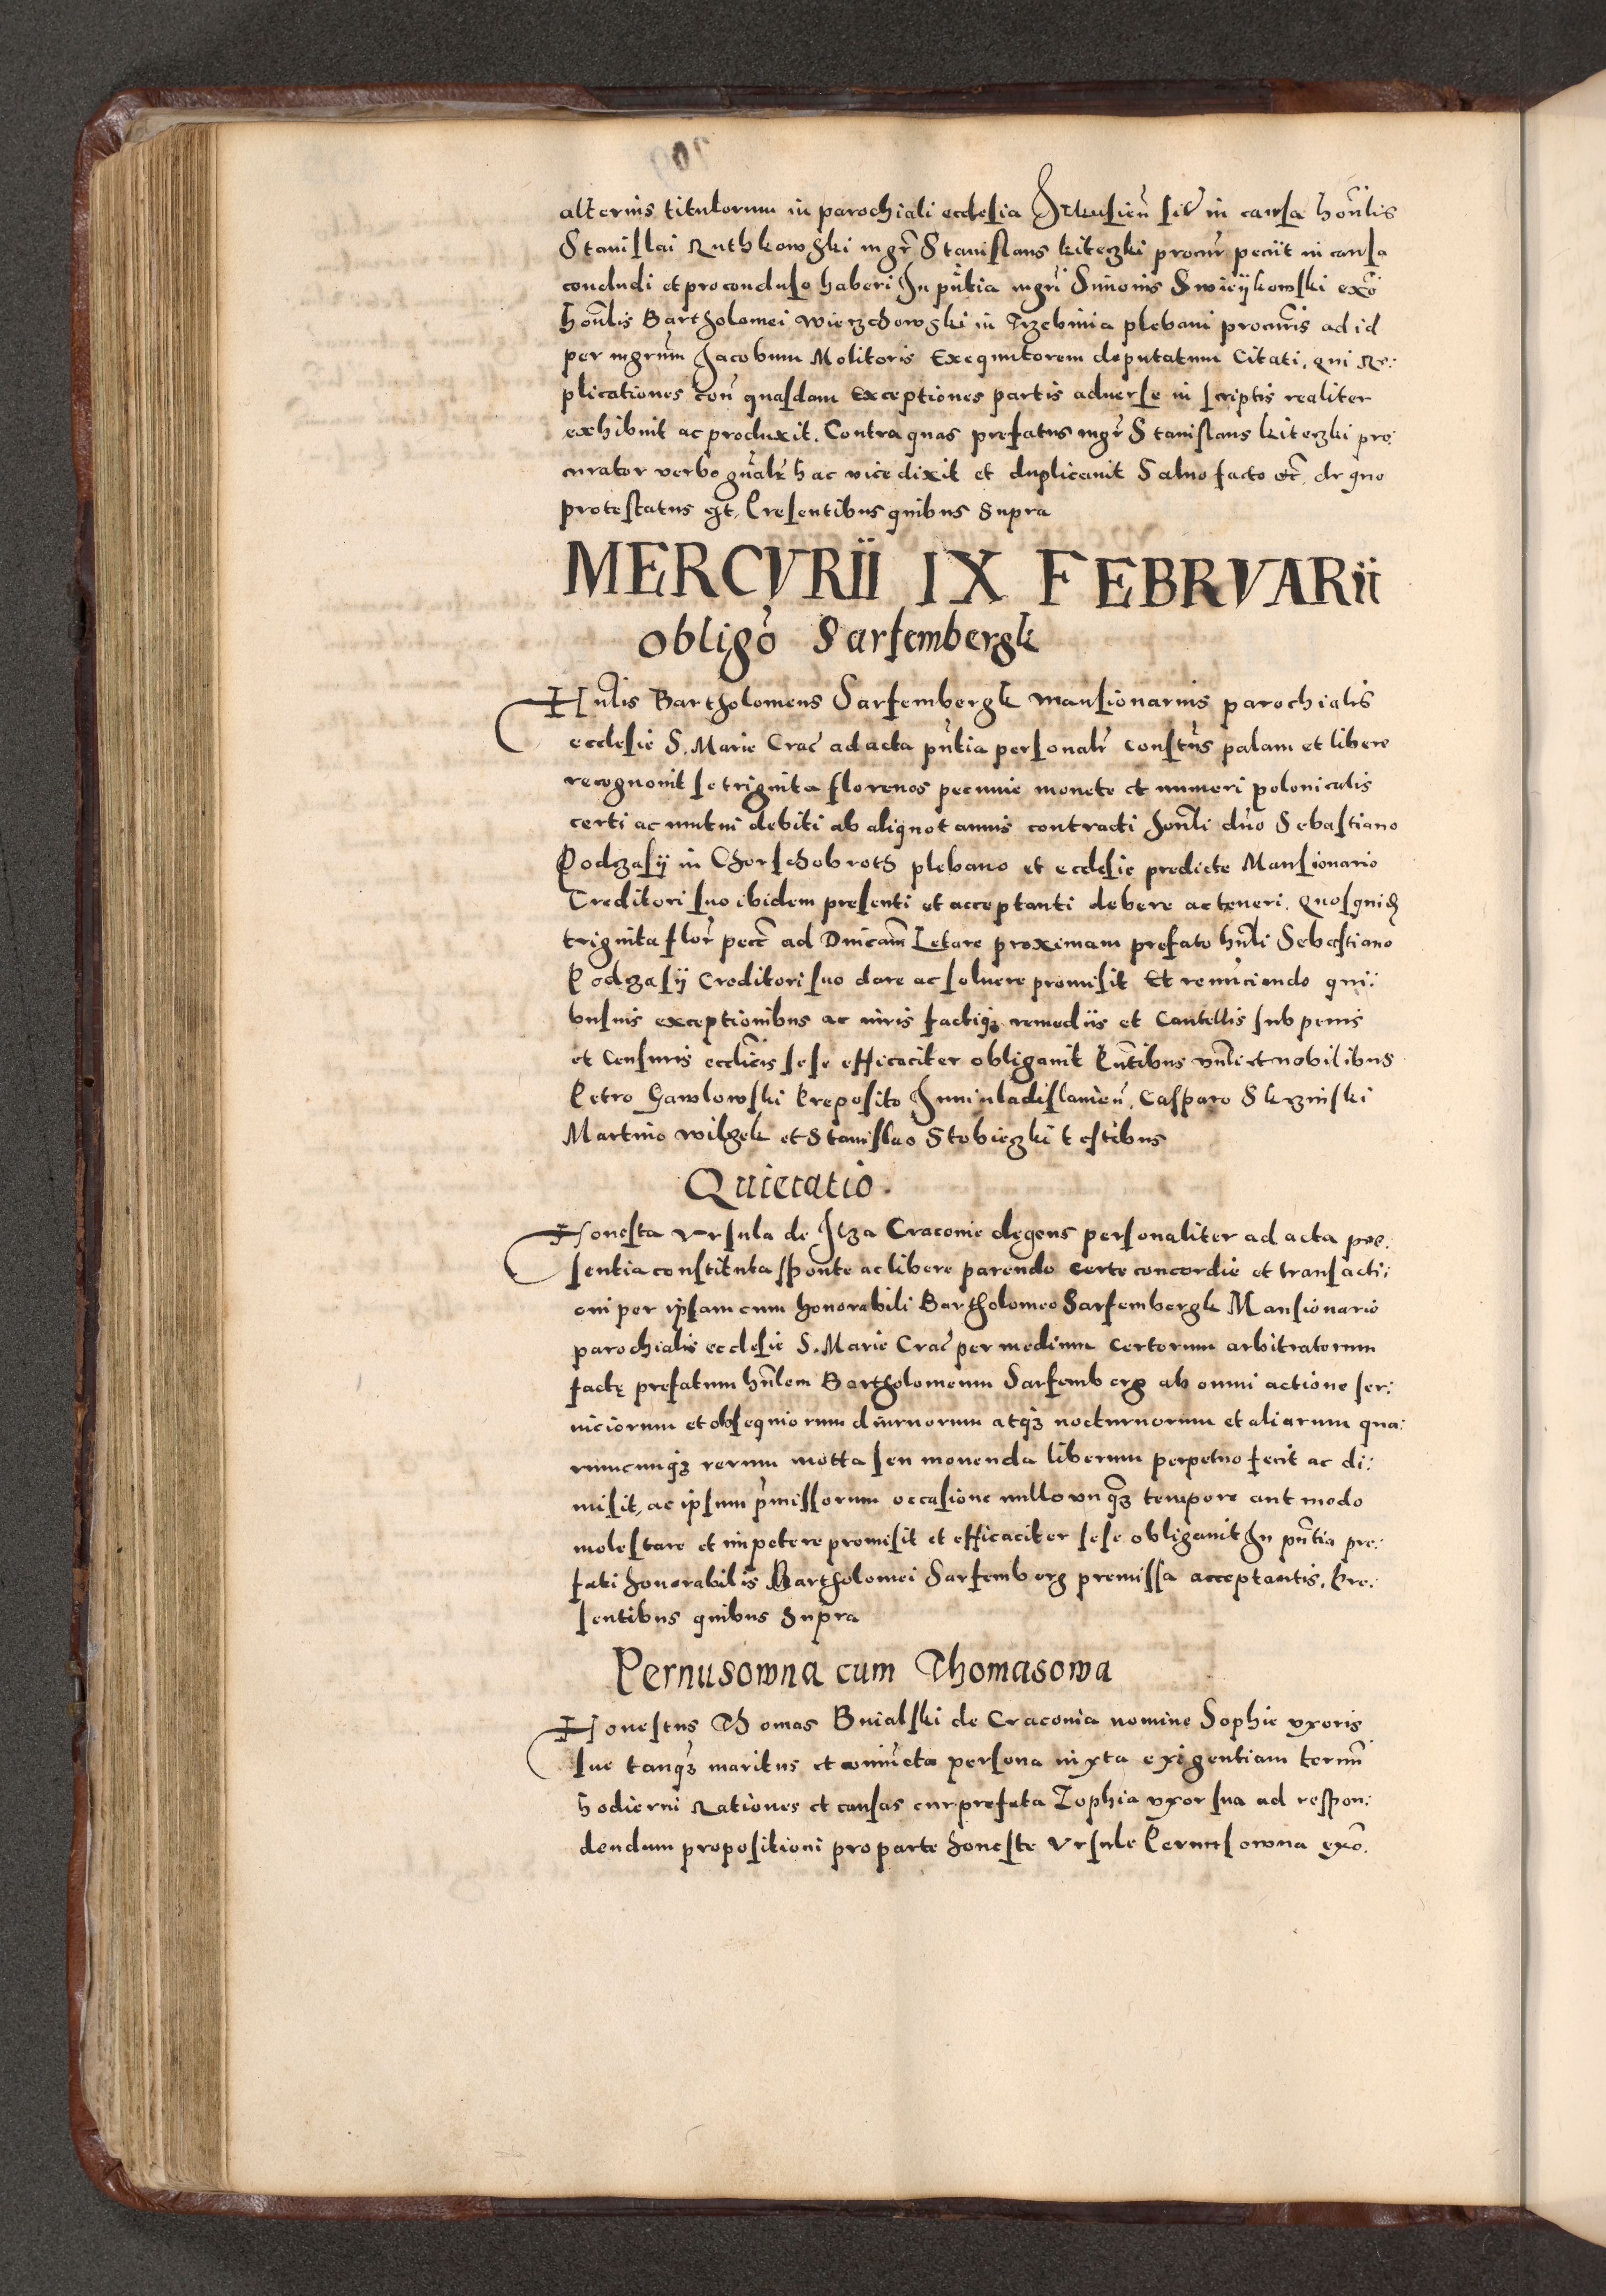 alternis titulorum in parochiali ecclesia sit in causa honlis
Stanislai Ruthkowski mgr Stanislaus kiteczki procur peciit in causa
concludi et pro concluso haberi In pntia mgri Simonis Swieijkowski exo
honlis Bartholomei Wierzchowski in Trzebinia plebani procuris ad id
per mgrum Jacobum Molitoris Exequutorem deputatum Citati, qui Re:
plicationes con quasdam Exceptiones partis aduerse in scriptis realiter
exhibuit ac produxit. Contra quas prefatus mgr Stanislaus kiteczki pro:
curator verbo gnalr hac vice dixit et duplicauit Saluo facto etc, de quo
protestatus est, Presentibus quibus Supra
MERCVRII IX FEBRVARII
Obligo Sarfembergk
Hnlis Bartholomeus Sarfembergk Mansionarius parochialis
ecclesie S. Marie Crac ad acta pntia personalr constus palam et libere
recognouit se triginta florenos pecunie monete et numeri polonicalis
certi ac mutui debiti ab aliquot annis contracti honli dno Sebastiano
Podzasij in Chorschobroth plebano et ecclesie predicte Mansionario
Creditori suo ibidem presenti et acceptanti debere ac teneri. Quosquid
triginta flor pecc ad Dnicam Letare proximam prefato hnli Sebastiano
Podzasij Creditori suo dare ac soluere promisit Et renunciando qui:
busuis exceptionibus ac iuris factiq3 remediis et Cautellis sub penis
et Censuris ecclicis sese efficaciter obligauit Pntibus vnli et nobilibus
Petro Gawlowski Preposito Juniuladislauien, Casparo Skrzinski
Martino Wilgek et Stanislao Stobieczki testibus
Quietatio.
Honesta Vrsula de Ilza Craconie degens personaliter ad acta pre:
sentia constituta sponte ac libere parendo certe concordie et transacti:
oni per ipsam cum honorabili Bartholomeo Sarfembergk Mansionario
parochialis ecclesie S. Marie Crac per medium certorum arbitratorum
factę prefatum hnlem Bartholomeum Sarfemberg ab omni actione ser:
uiciorum et obsequiorum diurnorum atq3 nocturnorum et aliarum qua:
rumcunq3 rerum motta seu mouenda liberum perpetuo fecit ac di:
misit, ac ipsum pmissorum occasione nullo vnq3 tempore aut modo
molestare et impetere promisit et efficaciter sese obligauit In pntia pre:
fati honorabilis Bartholomei Sarfemberg premissa acceptantis. Pre:
sentibus quibus Supra
Pernusowna cum Thomasowa
Honestus Thomas Buialski de Craconia nomine Sophie vxoris
sue tanq3 maritus et coniucta persona iuxta exigentiam termi
hodierni Rationes et causas cur prefata Zophia vxor sua ad respon:
dendum propositioni pro parte honeste Vrsule Pernusowna exo.